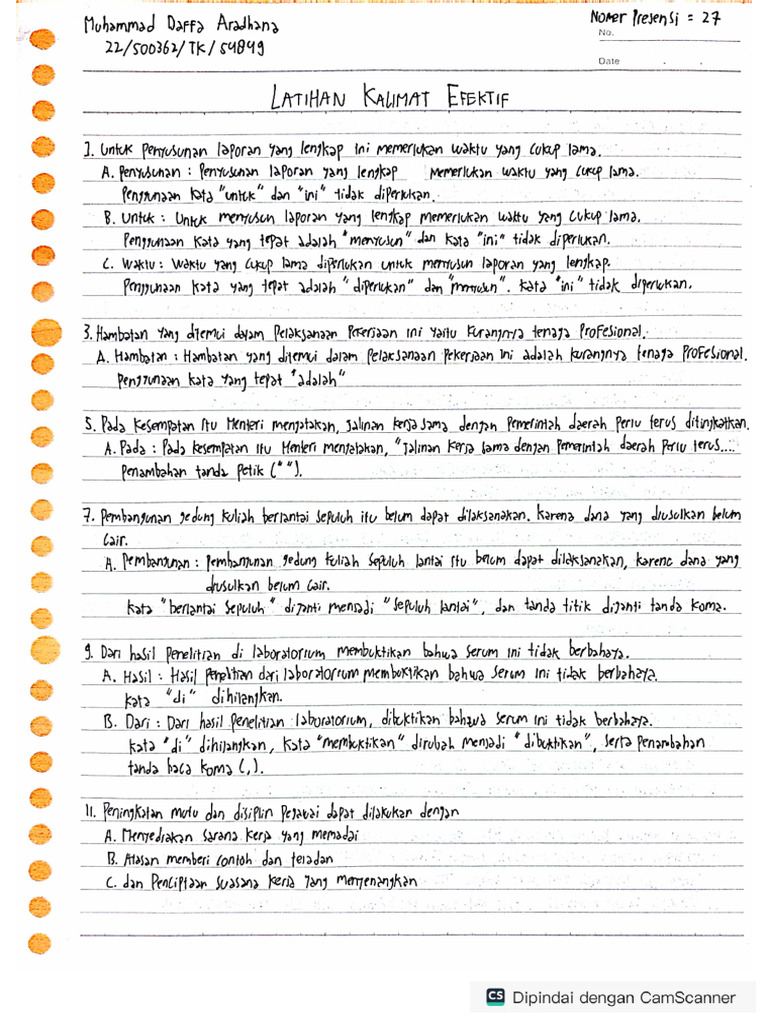 Muhammad Daffa Aradhana
Nomer Presensi = 27
22/500362/TK/54849
No.
Date
LATIHAN KALIMAT EFEKTIF
1. Untuk penyusunan laporan yang lengkap ini memerlukan waktu yang cukup lama.
A. Penyusunan : Penyusunan laporan yang lengkap memerlukan waktu yang cukup lama.
Penggunaan kata "untuk" dan "ini" tidak diperlukan.
B. Untuk : Untuk menyusun laporan yang lengkap memerlukan waktu yang cukup lama.
Penggunaan kata yang tepat adalah "menyusun" dan kata "ini" tidak diperlukan.
C. Waktu : Waktu yang cukup lama diperlukan untuk menyusun laporan yang lengkap.
Penggunaan kata yang tepat adalah "diperlukan" dan "menyusun". Kata "ini" tidak diperlukan.
3. Hambatan yang ditemui dalam pelaksanaan pekerjaan ini yaitu kurangnya tenaga profesional.
A. Hambatan : Hambatan yang ditemui dalam pelaksanaan pekerjaan ini adalah kurangnya tenaga profesional.
Penggunaan kata yang tepat "adalah"
5. Pada kesempatan itu Menteri mengatakan, jalinan kerja sama dengan pemerintah daerah perlu terus ditingkatkan.
A. Pada : Pada kesempatan itu Menteri mengatakan, "Jalinan kerja sama dengan pemerintah daerah perlu terus....
Penambahan tanda petik (" ").
7. Pembangunan gedung kuliah berlantai sepuluh itu belum dapat dilaksanakan. Karena dana yang diusulkan belum
cair.
A. Pembangunan : Pembangunan gedung kuliah sepuluh lantai itu belum dapat dilaksanakan, karena dana yang
diusulkan belum cair.
Kata "berlantai sepuluh" diganti menjadi "sepuluh lantai", dan tanda titik diganti tanda koma.
9. Dari hasil penelitian di laboratorium membuktikan bahwa serum ini tidak berbahaya.
A. Hasil : Hasil penelitian dari laboratorium membuktikan bahwa serum ini tidak berbahaya.
Kata "di" dihilangkan.
B. Dari : Dari hasil penelitian laboratorium, dibuktikan bahwa serum ini tidak berbahaya.
Kata "di" dihilangkan, kata "membuktikan" dirubah menjadi "dibuktikan", serta penambahan
tanda baca koma (,).
11. Peningkatan mutu dan disiplin pegawai dapat dilakukan dengan
A. Menyediakan sarana kerja yang memadai
B. Atasan memberi contoh dan teladan
C. dan Penciptaan suasana kerja yang menyenangkan
CS Dipindai dengan CamScanner